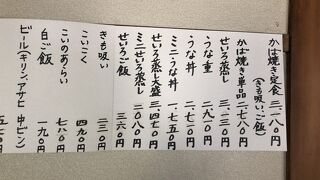 かば焼き定食 三、一八〇円
(きも吸い、ご飯)
かば焼き単品 二、七八〇円
せいろ蒸し 三、一三〇円
うな重 二、九一〇円
うな丼 二、七一〇円
ミニうな丼 一、七五〇円
せいろ蒸し大盛 三、四七〇円
ミニせいろ蒸し 二、〇八〇円
せいろご飯 三六〇円
きも吸い 二三〇円
こいこく 四九〇円
こいのあらい 七八〇円
白ご飯 一九〇円
ビール(キリン、アサヒ 中ビン) 五七